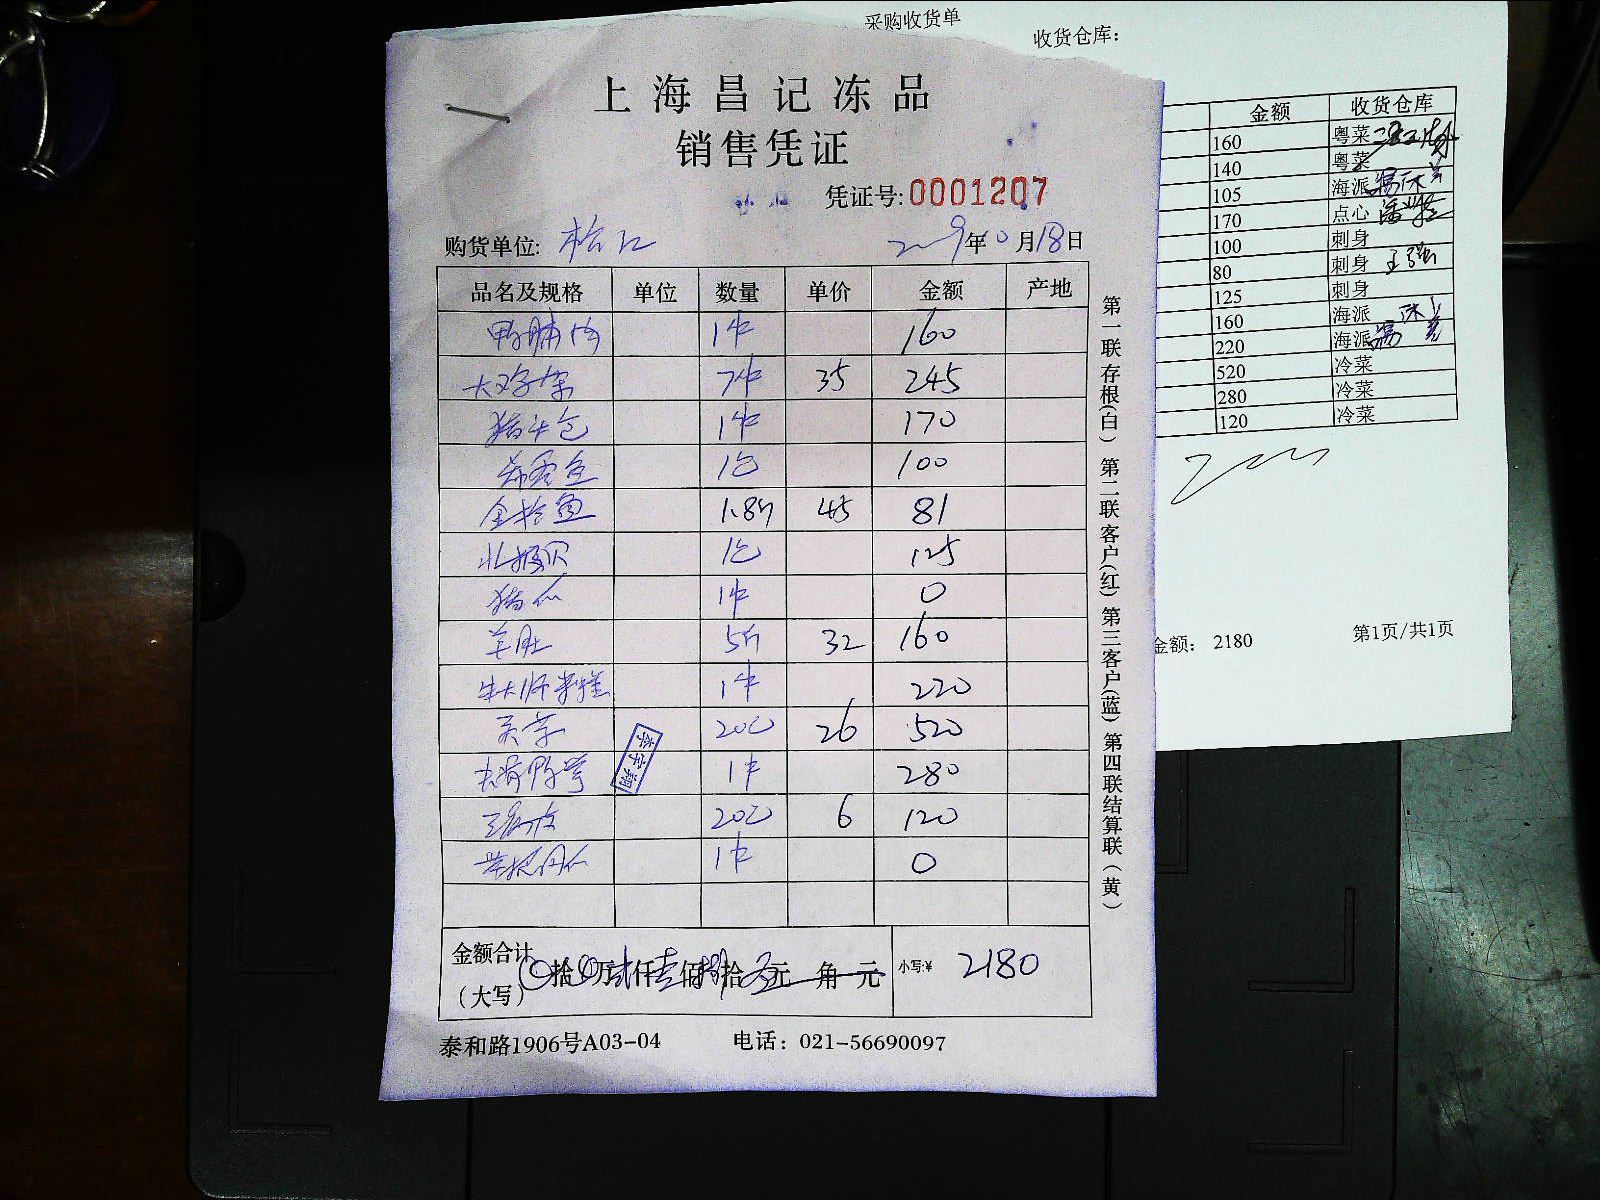 采购收货单
收货仓库：
上海昌记冻品
销售凭证
凭证号:0001207
购货单位: 松江 2009年10月18日
品名及规格 单位 数量 单价 金额 产地
1件 160
大鸡架 7件 35 245
1件 170
希零鱼 1包 100
金枪鱼 1.8斤 45 81
北极贝 1包 125
1件 0
羊肚 5斤 32 160
1件 220
20包 26 520
1件 280
20包 6 120
1件 0
金额合计
（大写） 拾 万贰仟壹佰捌拾 元 角 元 小写:¥ 2180
泰和路1906号A03-04 电话：021-56690097
第一联存根(白) 第二联客户(红) 第三客户(蓝) 第四联结算联(黄)
李宇翔
金额 收货仓库
160 粤菜
140 粤菜
105 海派
170 点心
100 刺身
80 刺身 王强
125 刺身
160 海派
220 海派
520 冷菜
280 冷菜
120 冷菜
金额： 2180 第1页/共1页